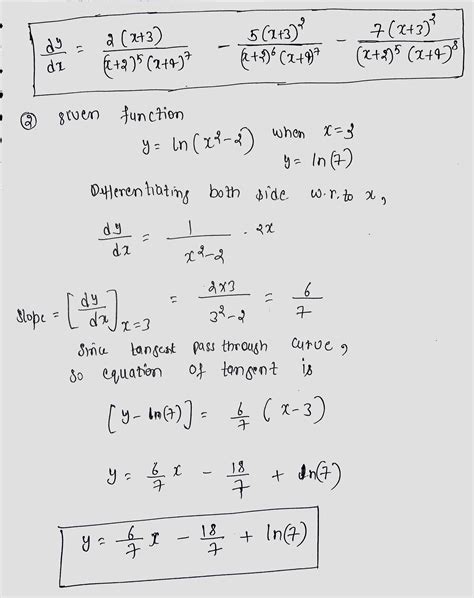 dy/dx = 2(x+3)/((x+2)^5 (x+4)^7) - 5(x+3)^2/((x+2)^6 (x+4)^7) - 7(x+3)^2/((x+2)^5 (x+4)^8)
② given function
y = ln(x^2-2) when x=3
y = ln(7)
Differentiating both side w.r.to x,
dy/dx = 1/(x^2-2) · 2x
slope = [dy/dx]_{x=3} = 2×3/(3^2-2) = 6/7
Since tangent pass through curve,
so equation of tangent is
[y - ln(7)] = 6/7 (x-3)
y = 6/7 x - 18/7 + ln(7)
y = 6/7 x - 18/7 + ln(7)